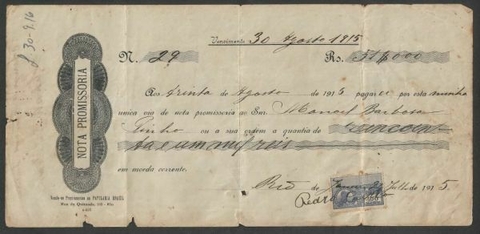 £ 30-9-16
NOTA PROMISSORIA
Vencimento 30 Agosto 1915
N. 29 Rs. 51$000
Aos trinta de Agosto de 1915 pagarei por esta minha
unica via de nota promissoria ao Snr. Manoel Barbosa
Pinho ou a sua ordem a quantia de cincoen
ta e um mil reis
em moeda corrente.
Rio de Julho de 1915
Pedro
PAPELARIA BRAZIL